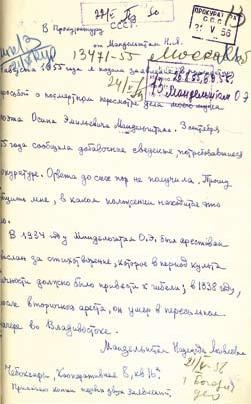 ПРОКУРАТУРА
СССР
V 56
В Прокуратуру
от Мандельштам Н.Я.
13471-55 Москва
августа 1955 года я подала заявление
просьбой о посмертном пересмотре дела моего мужа
поэта Осипа Эмильевича Мандельштама. 3 октября
5 года сообщила добавочные сведения, потребовавшиеся
прокуратуре. Ответа до сих пор не получила. Прошу
сообщить мне, в каком положении находится это
В 1934 году Мандельштам О.Э. был арестован
выслан за стихотворение, которое в период культа
личности должно было привести к гибели; в 1938 году,
после вторичного ареста, он умер в пересыльном
лагере во Владивостоке.
Мандельштам Надежда Яковлевна
Чебоксары, Кооперативная 8, кв 16.
Прилагаю копии первых двух заявлений.